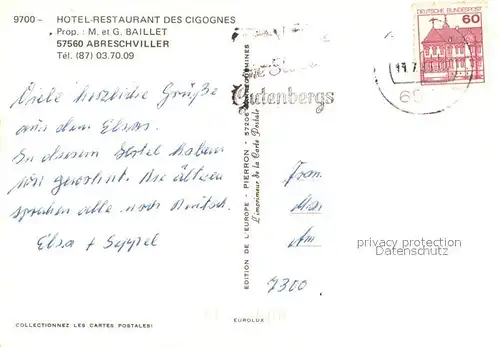 9700 – HOTEL-RESTAURANT DES CIGOGNES
Prop. : M. et G. BAILLET
57560 ABRESCHVILLER
Tél. (87) 03.70.09
DEUTSCHE BUNDESPOST
60
Gutenbergs
65
Viele herzliche Grüße
aus dem Elsass.
In diesem Hotel haben
wir gewohnt. Die älteren
sprechen alle noch Deutsch.
Elsa + Seppel
EDITION DE L'EUROPE - PIERRON - 57206 SARREGUEMINES
L'imprimeur de la Carte Postale
Am
7300
privacy protection
Datenschutz
COLLECTIONNEZ LES CARTES POSTALES!
EUROLUX